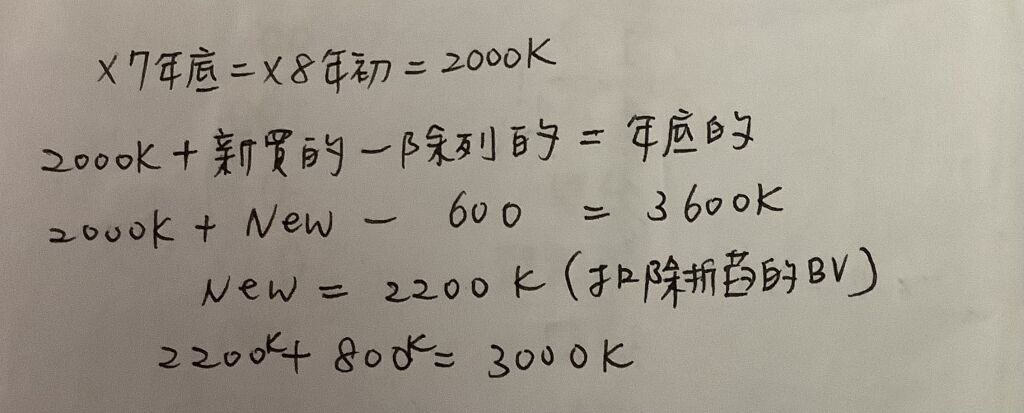 ×7年底=×8年初=2000K
2000K+新買的-除列的=年底的
2000K+New-600=3600K
New=2200K(扣除折舊的BV)
2200K+800K=3000K